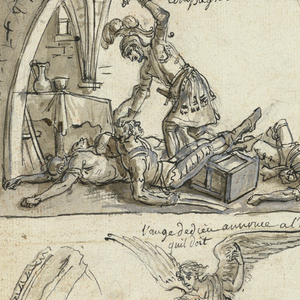 l'ange de dieu annonce a l'
qu'il doit